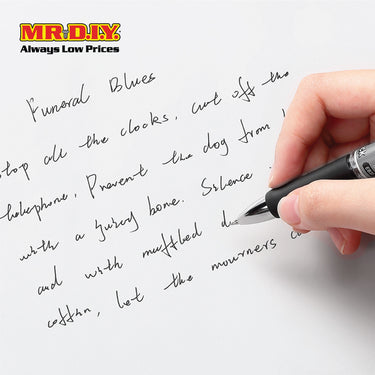 MR.D.I.Y.
Always Low Prices
Funeral Blues
stop all the clocks, cut off the
telephone, Prevent the dog from b
with a juicy bone. Silence
and with muffled d
coffin, let the mourners c